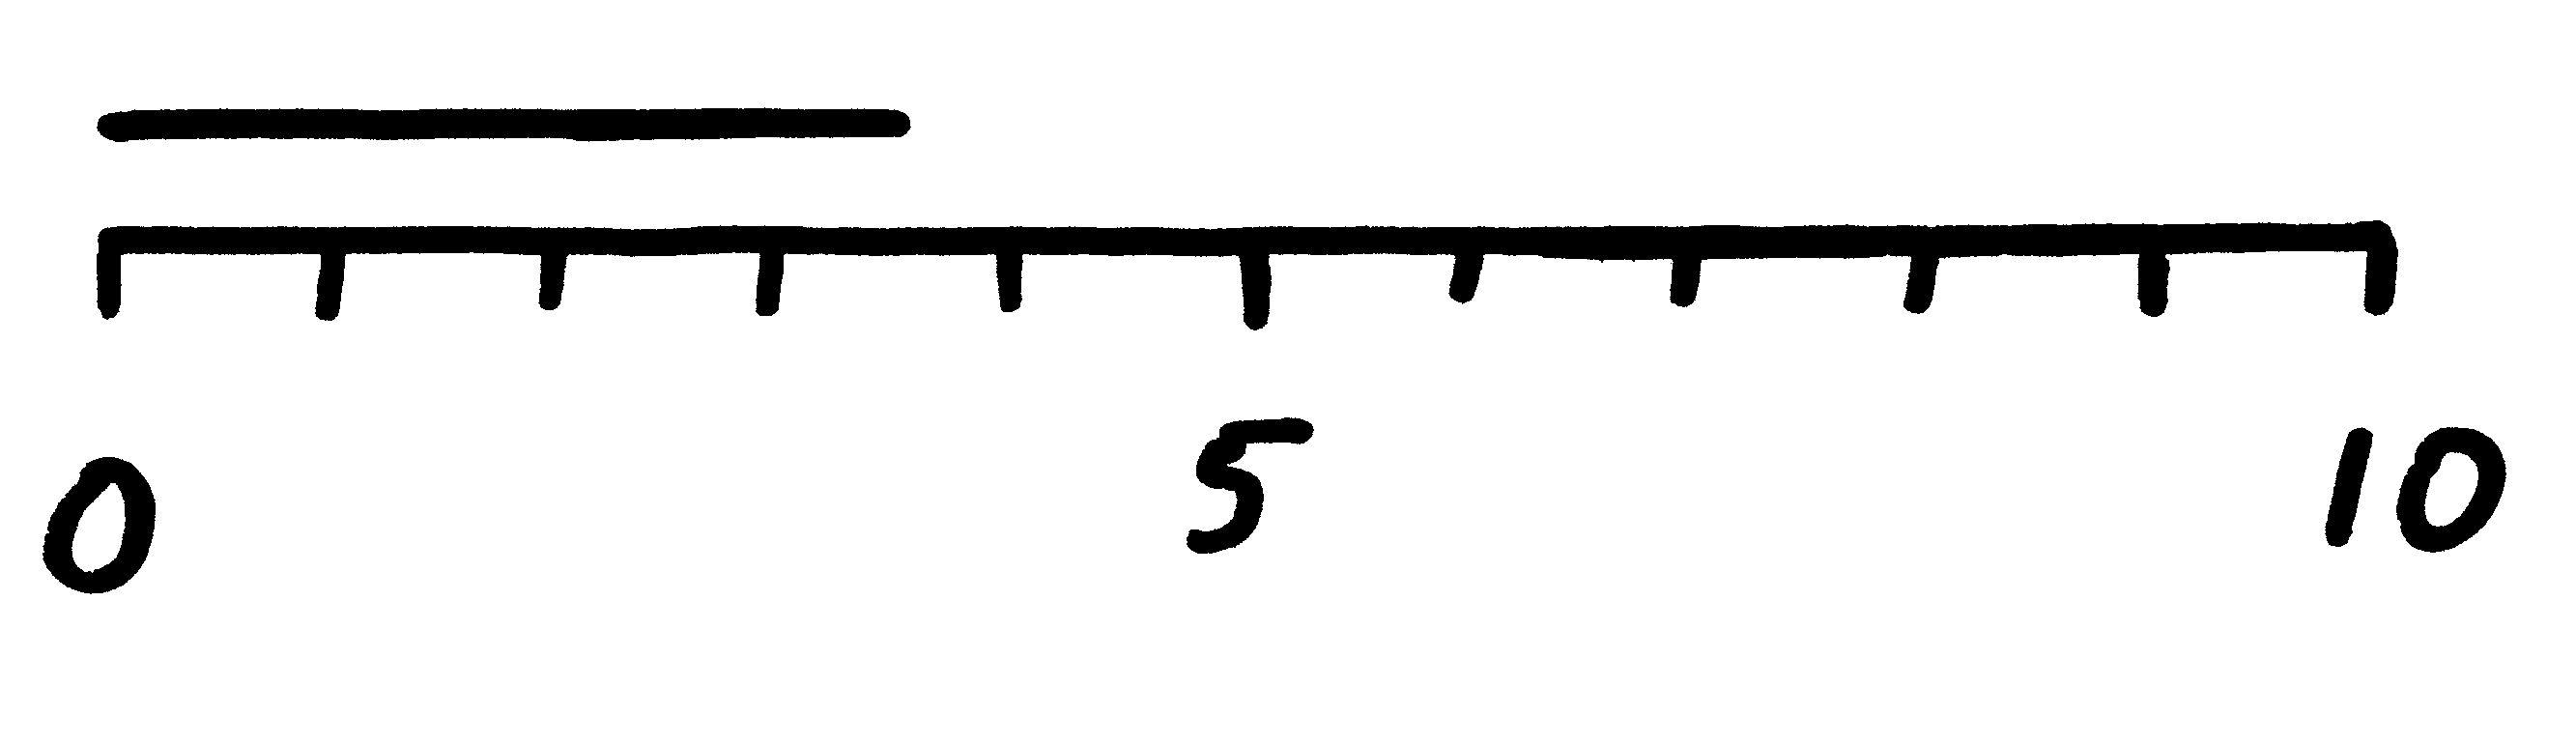 0 5 10